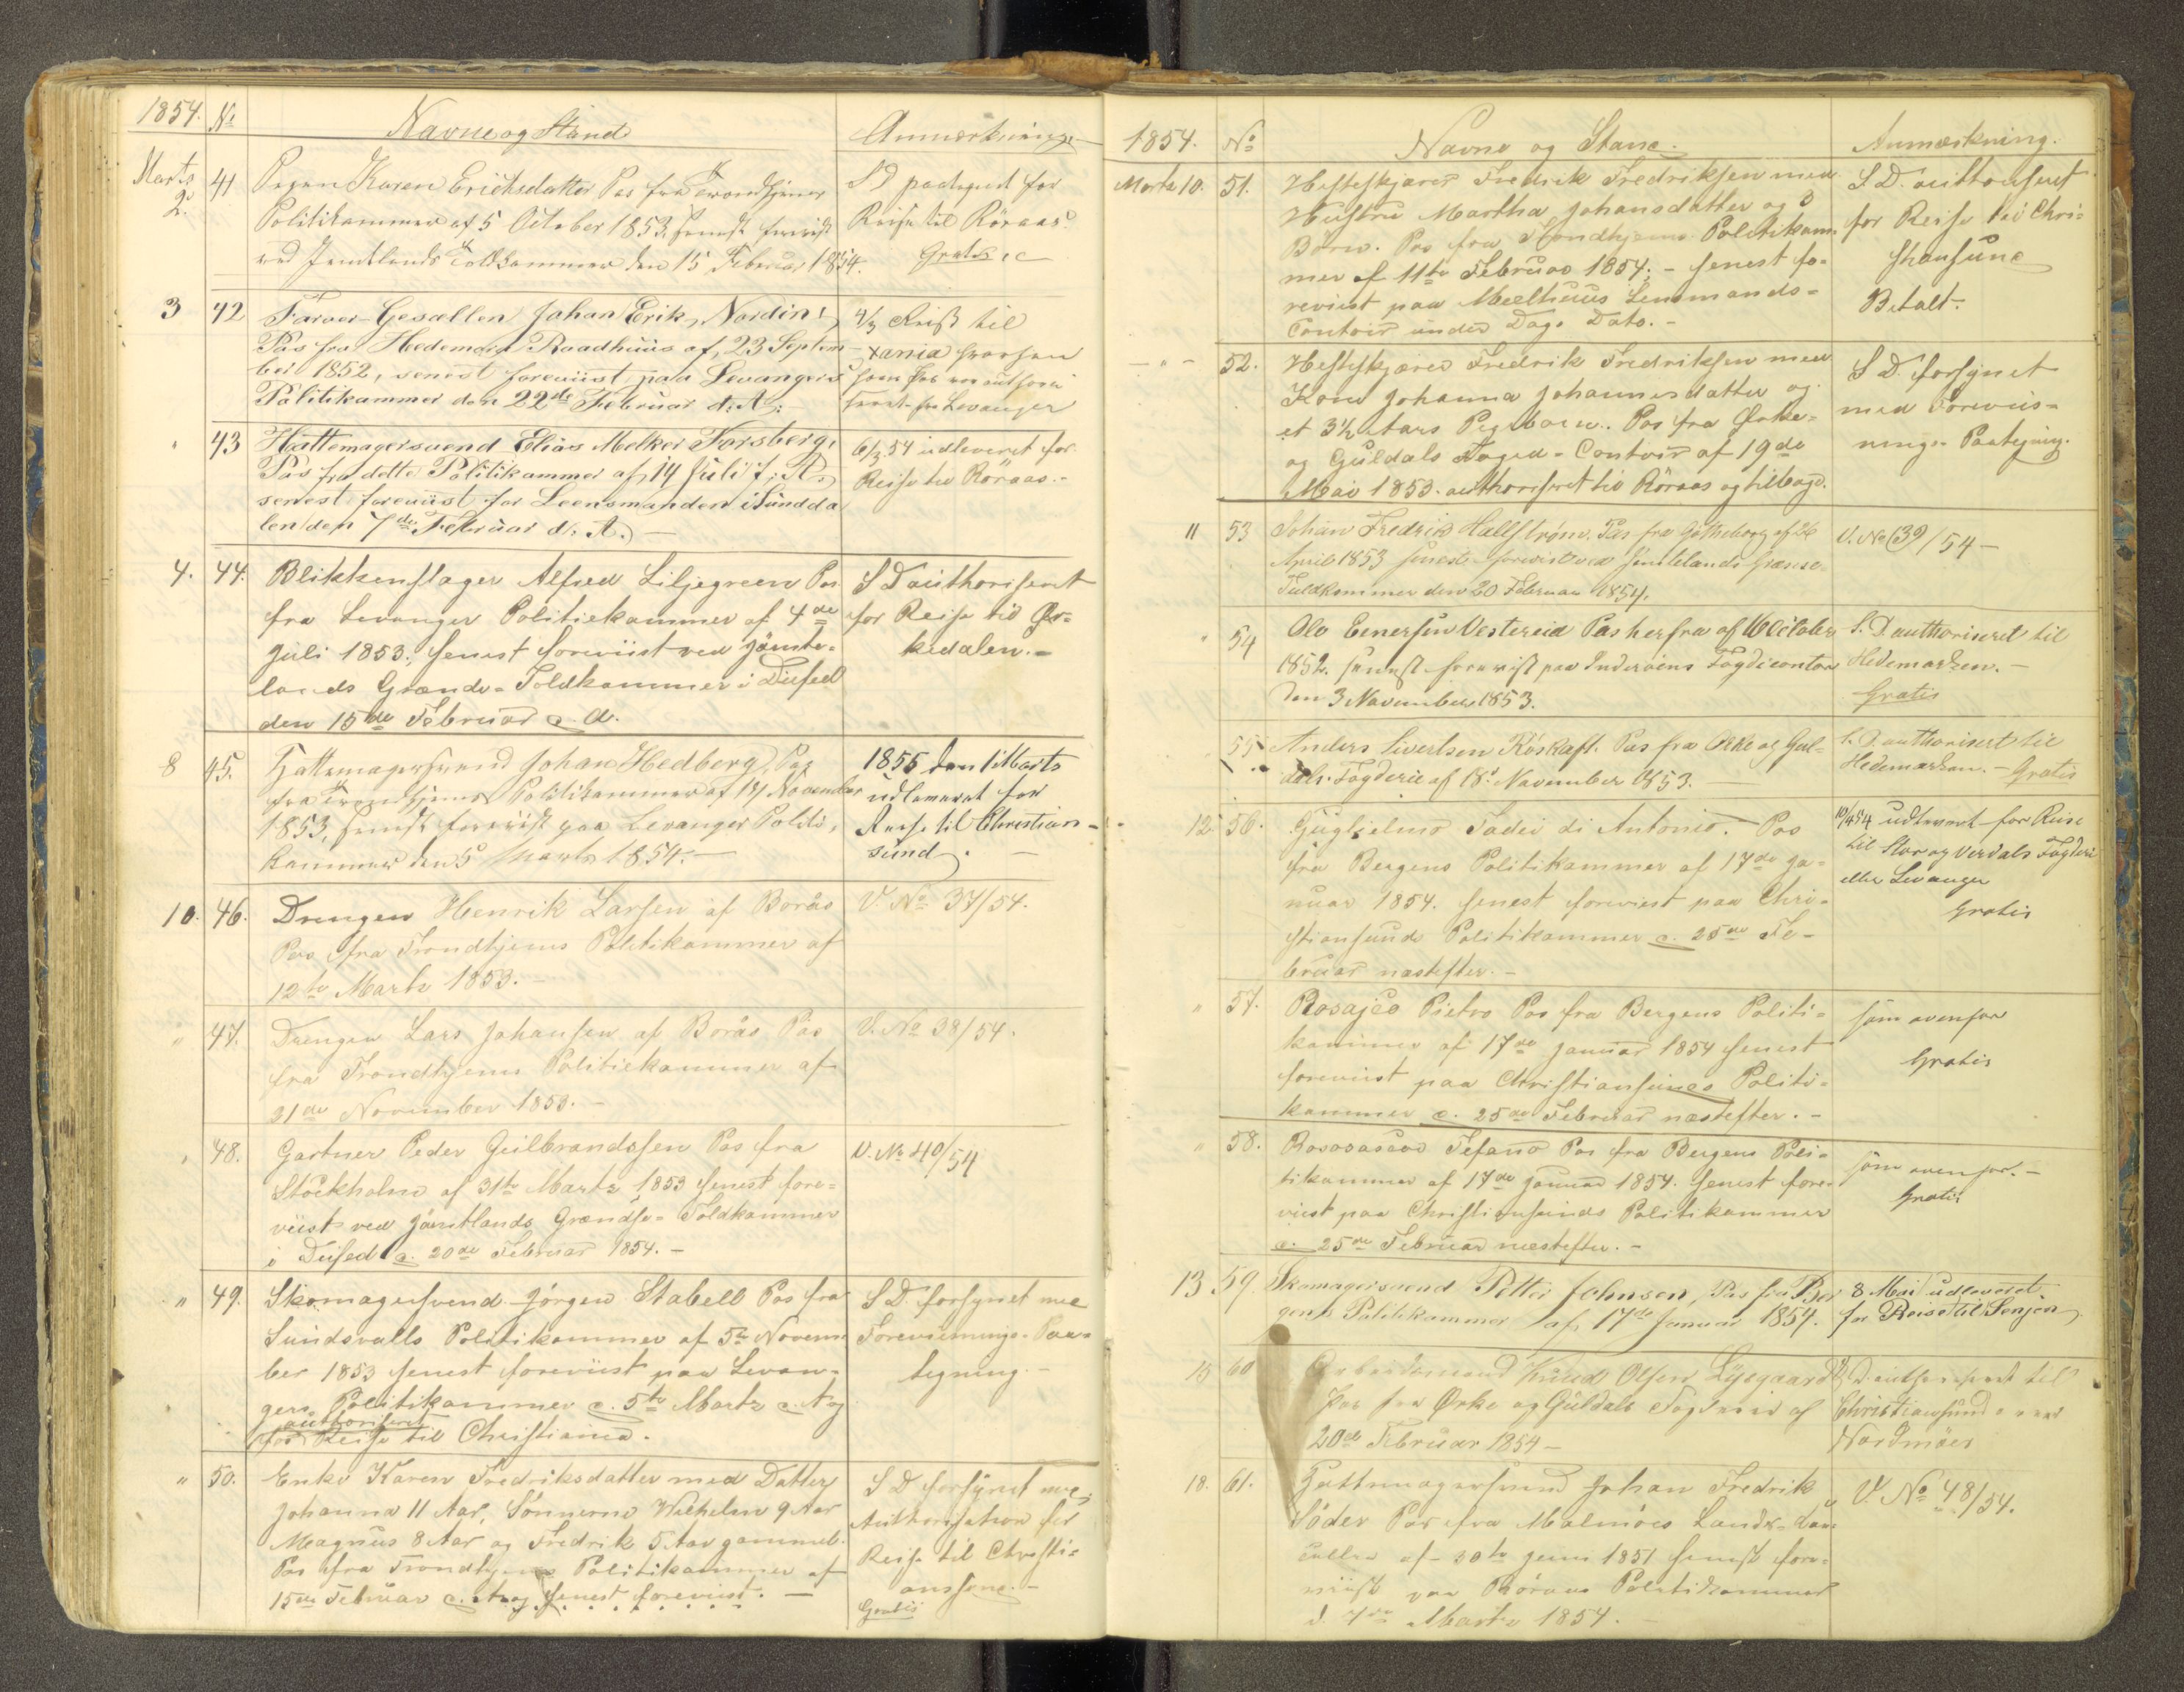 1854. No Navne og Stand Anmærkninger
Marts 2. 41 Pigen Karen Erichsdatter Pas fra Trondhjems S D paategnet for
Politikammer af 5 October 1853, senest foreviist Reise til Röraas.
ved Jemtlands Toldkammer den 15 Februar 1854. Gratis
3 42 Farver-Gesællen Johan Erik Nordin, 4/3 Reist til
Pas fra Hedemora Raadhuus af 23 Septem- Xania
ber 1852, senest foreviist paa Levangers
Politikammer den 22de Februar d. A. Levanger
" 43 Hattemagersvend Elias Melker Forsberg, 6/3 54 udleveret for
Pas fra dette Politikammer af 14 Juli f. A. Reise til Röraas.-
senest foreviist for Leensmanden i Sundda
len den 7de Februar d. A. -
4. 44. Blikkenslager Alfred Liljegreen Pas S D authoriseret
fra Levanger Politiekammer af 4de for Reise til Ør-
Juli 1853; senest foreviist ved Jämte- kedalen.-
lands Grændse-Toldkammer i Dufed
den 15de Februar d. A.
8 45. Hattemagersvend Johan Hedberg, Pas 1855 den 1 Marts
fra Trondhjems Politikammer af 14 November udleveret for
1853, senest foreviist paa Levanger Politi- Reise til Christian-
kammer den 5 Marts 1854.- sund.-
10. 46. Drengen Henrik Larsen af Borås V. No 37/54.
Pas fra Trondhjems Politikammer af
12te Marts 1853.-
" 47. Drengen Lars Johansen af Borås Pas V. No 38/54.
fra Trondhjems Politiekammer af
21de November 1853.-
" 48. Gartner Peder Guilbrandssen Pas fra V. No 40/54
Stockholm af 31te Marts 1853 senest fore-
viist ved Jämtlands Grændse-Toldkammer
i Dufed d. 20de Februar 1854.-
" 49. Skomagersvend Jørgen Stabell Pas fra S D. forsynet med
Sundsvalls Politikammer af 5te Novem- Foreviisnings-Paa-
ber 1853 senest foreviist paa Levan- tegning.-
gers Politikammer d. 5te Marts d. A og
authoriseret
for Reise til Christiania.
" 50. Enke Karen Fredriksdatter med Datter S D forsynet med
Johanna 11 Aar, Sønnerne Wilhelm 9 Aar Authorisation for
Magnus 8 Aar og Fredrik 5 Aar gammel. Reise til Christi-
Pas fra Trondhjems Politikammer af anssund.-
15de Februar d. A og senest foreviist.- Gratis
1854. No Navne og Stand. Anmærkning.
Marts 10. 51. Hesteskjærer Fredrik Fredriksen med S D. authoriseret
Hustru Martha Johansdatter og 3 for Reise til Chri-
Börn. Pas fra Trondhjems Politikam- stiansund
mer af 11te Februar 1854;- senest fo- Betalt.-
reviist paa Meelhuus Lensmands-
Contoir under Dags Dato.-
-"- 52. Hesteskjærer Fredrik Fredriksen med S D. forsynet
Kone Johanna Johannesdatter og med Foreviis-
et 3½ Aars Pigebarn. Pas fra Ørke- nings-Paategning.
og Guldals Foged-Contoir af 19de
Mai 1853. authoriseret til Röraas og tilbage.
11 53 Johan Fredrik Hallström. Pas fra Götheborg af 26 V. No (39)/54-
April 1853 senest foreviist ved Jemtelands Grændse-
Toldkammer den 20 Februar 1854.
" 54 Ole Einersen Vestereid Pas herfra af 16 October S. D authoriseret til
1852. senest foreviist paa Inderøens Fogdicontor Hedemarken.-
den 3 November 1853. Gratis
55 Anders Sivertsen Röskaft. Pas fra Ørke og Gul- S. D authoriseret til
dals Fogderie af 18. November 1853. Hedemarken.- Gratis
12. 56. Guglielmo Tadei di Antonio. Pas 10/4 54 udleveret for Reise
fra Bergens Politikammer af 17de Ja- til Stør og Verdals Fogderi
nuar 1854. senest foreviist paa Chri- eller Levanger
stiansunds Politikammer d. 25de Fe- Gratis
bruar næstefter.-
" 57. Rosajeo Pietro Pas fra Bergens Politi- som ovenfor
kammer af 17de Januar 1854 senest Gratis
foreviist paa Christiansunds Politi-
kammer d. 25de Februar næstefter.-
" 58. Tefano Pas fra Bergens Poli- som ovenfor.-
tikammer af 17de Januar 1854. senest fore- Gratis
viist paa Christiansunds Politikammer
d. 25de Februar næstefter.-
13 59. Skomagersvend Petter Johnsen, Pas fra Ber 8 Mai udleveret
gens Politikammer af 17de Januar 1854. for Reise til Senjen
15 60 Arbeidsmand Knud Olsen Lysgaard S. D. authoriseret til
Pas fra Ørke og Guldals Fogderie af Christiansund
20de Februar 1854- Nordmöer
18. 61. Hattemagersvend Johan Fredrik V. No 48/54.
Söder Pas fra Malmöes Lands-Can-
cellie af 30te Juni 1851 senest fore-
viist paa Röraas Politikammer
d. 7de Marts 1854.-